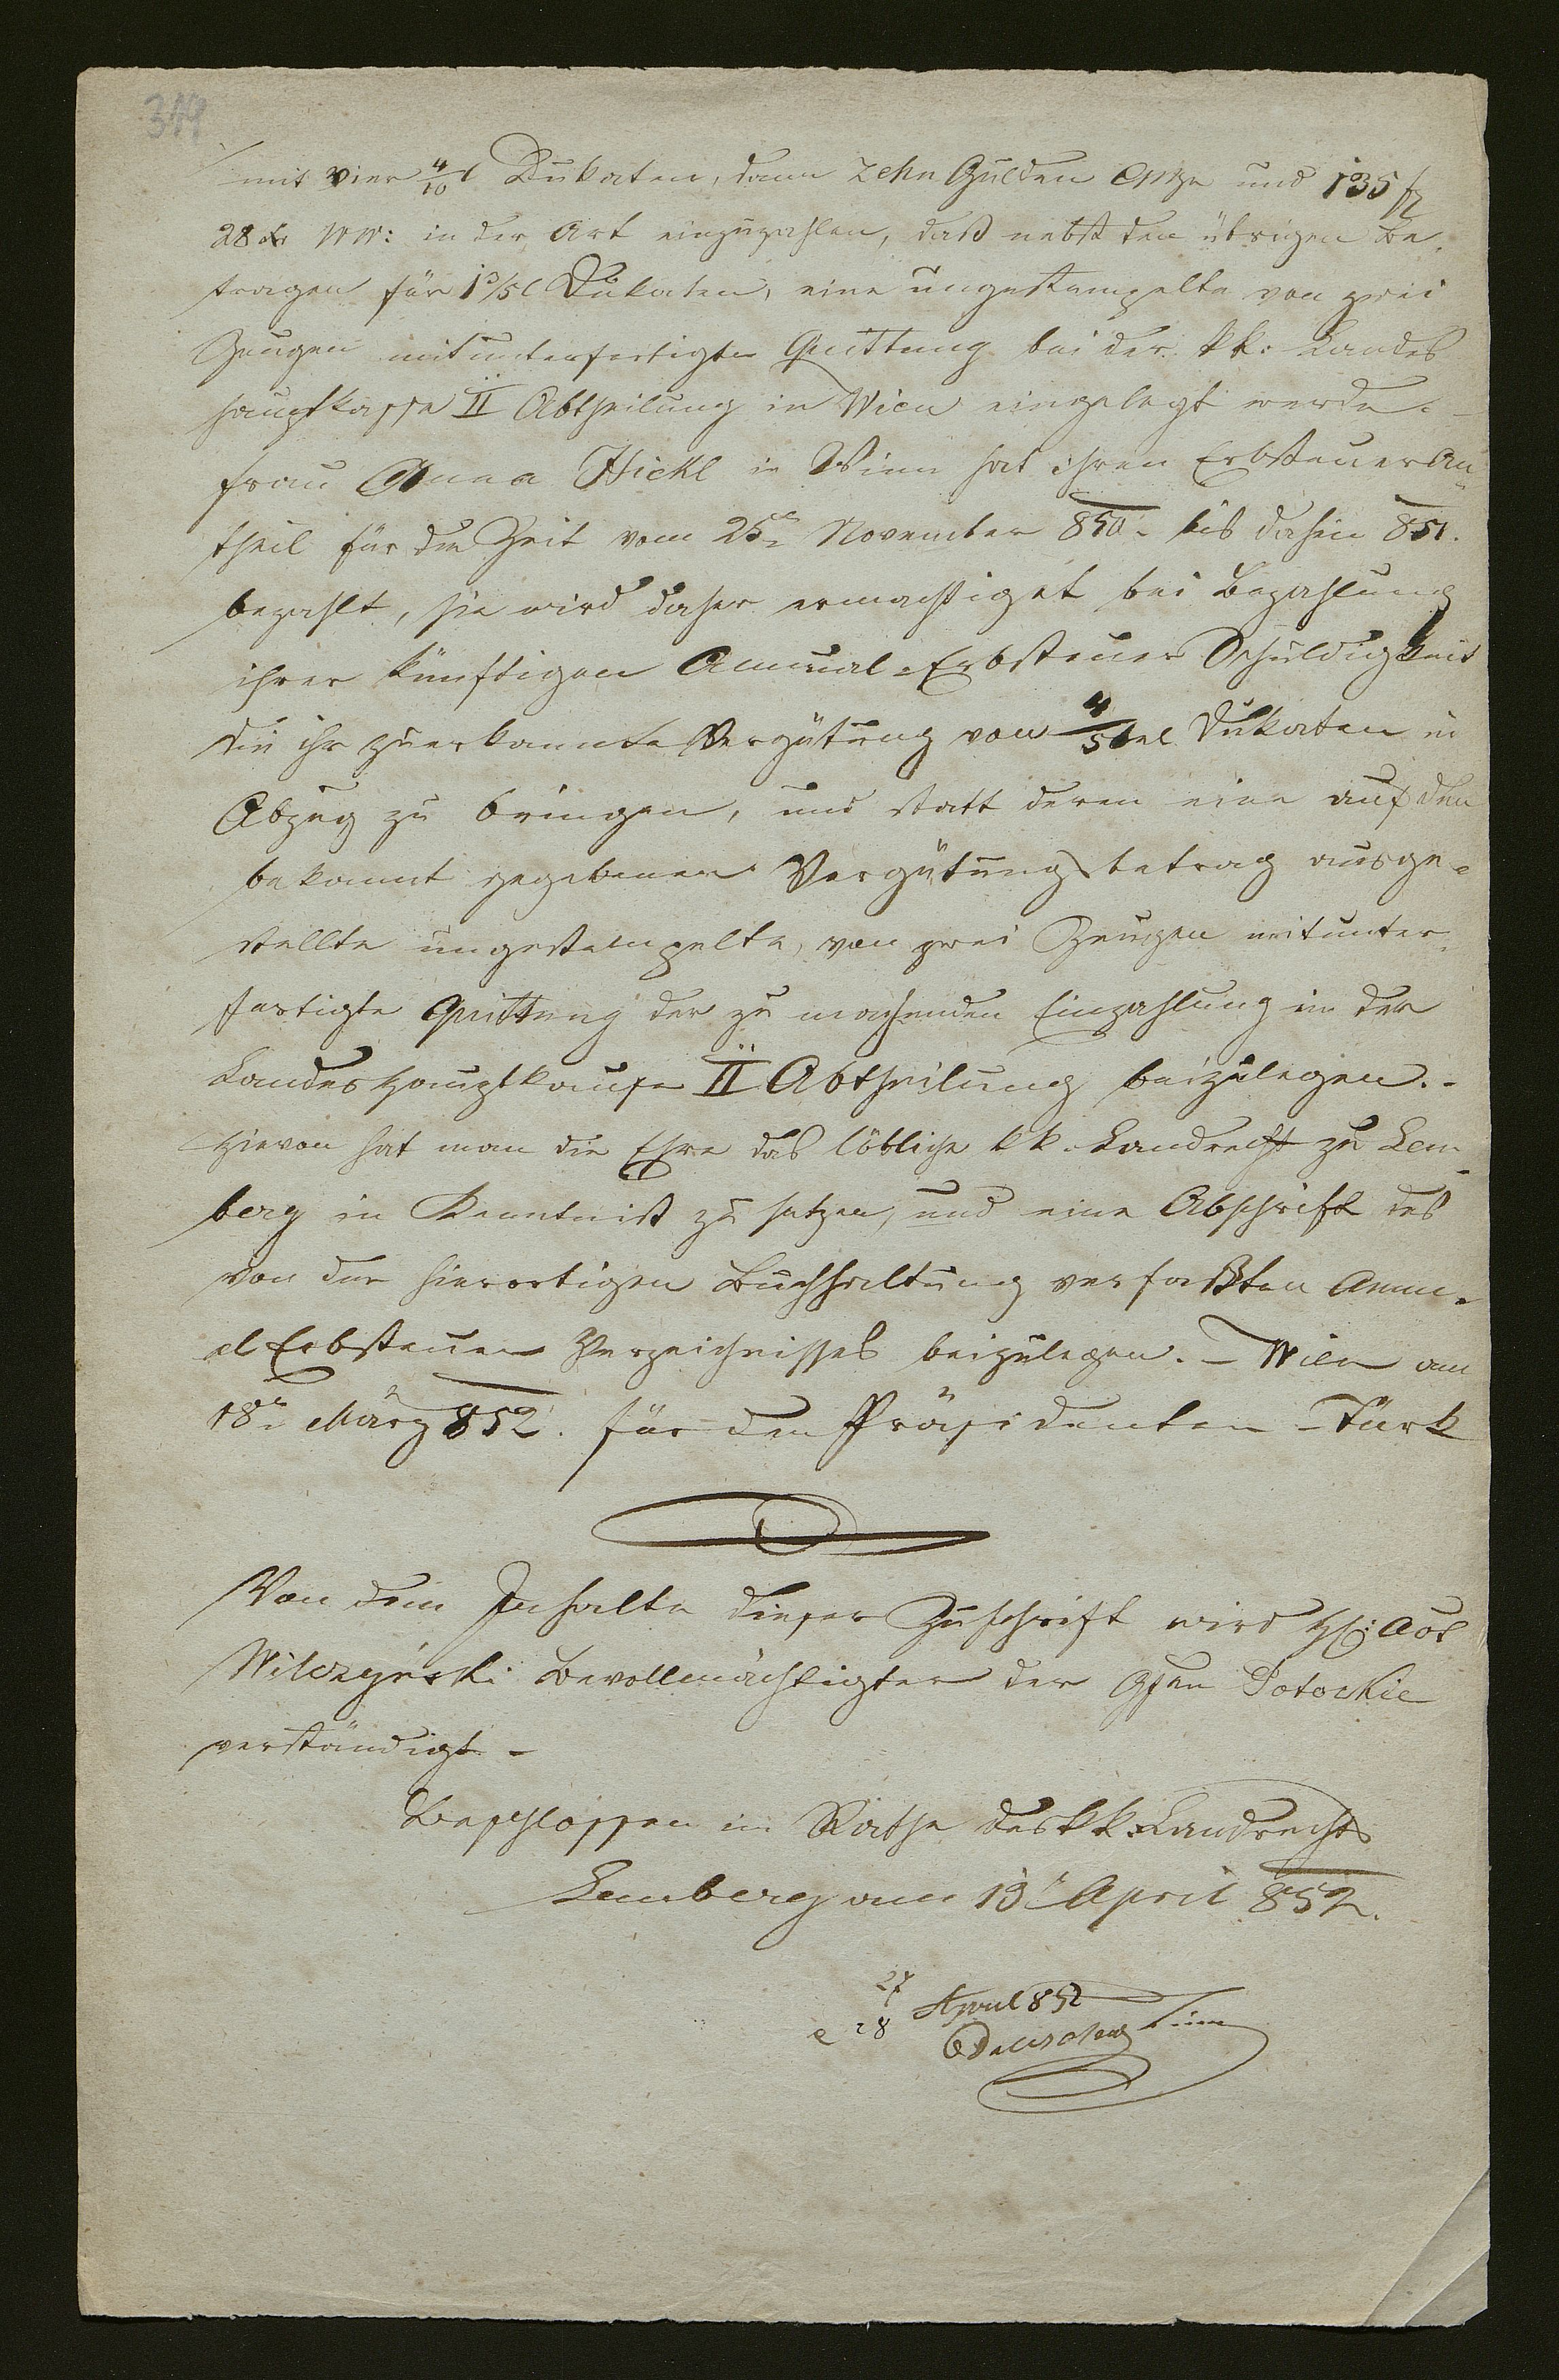 319
mit vier 4/10 Dukaten, dann zehn Gulden CMze und 135 f
28 xr WW: in der Art einzuzahlen, daß nebst den übrigen Be-
tragen für 1 3/5 Dukaten, eine ungestempelte von zwei
Zeugen mitunterfertigte Quittung bei der kk: Landes
hauptkasse II Abtheilung in Wien eingelegt werde. –
Frau Anna Hickl in Wien hat ihren Erbsteueran-
theil für die Zeit vom 25t November 850. bis dahin 851.
bezahlt, sie wird daher ermachtiget bei Bezahlung
ihrer künftigen Annual-Erbsteuer Schuldigkeit
die ihr zuerkannte Vergütung von 4/5tel Dukaten in
Abzug zu bringen, und statt deren eine auf den
bekannt gegebenen Vergütungsbetrag ausge-
stellte ungestempelte, von zwei Zeugen mitunter-
fertigte Quittung der zu machenden Einzahlung in der
Landeshauptkasse II Abtheilung beizulegen. –
Hievon hat man die Ehre das löbliche kk. Landrecht zu Lem-
berg in Kenntniß zu setzen, und eine Abschrift des
von der hierortigen Buchhaltung verfaßten Annu-
al Erbsteuer Verzeichnisses beizulegen. – Wien am
18t März 852. für den Präsidenten – Türk
Von dem Inhalte dieser Zuschrift wird H:
Wilczyński Bevollmächtigter der Gfen Potockie
verständigt –
Beschlossen im Rathe des kk. Landrechts
Lemberg am 13t April 852.
27
e 28 April 852